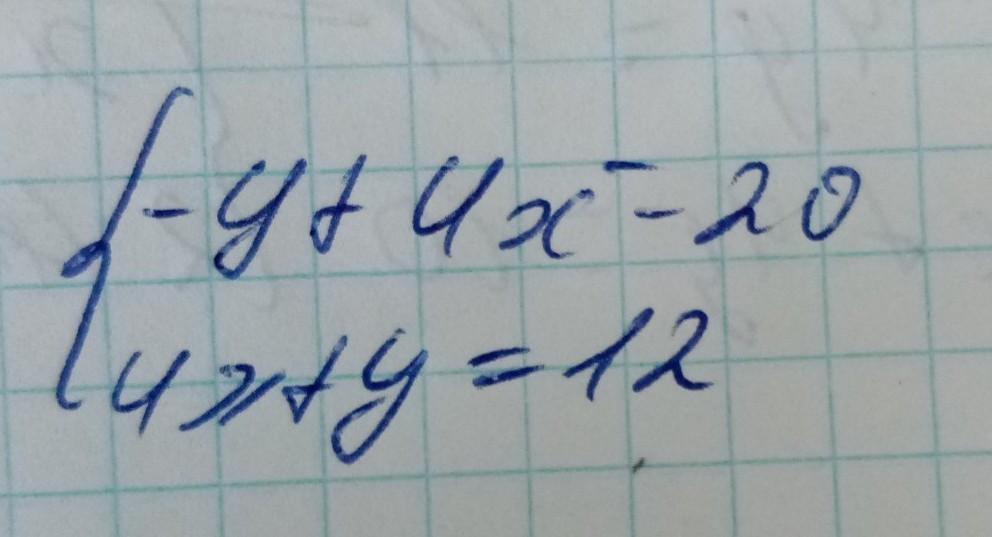 {-y + 4x = -20
4x + y = 12